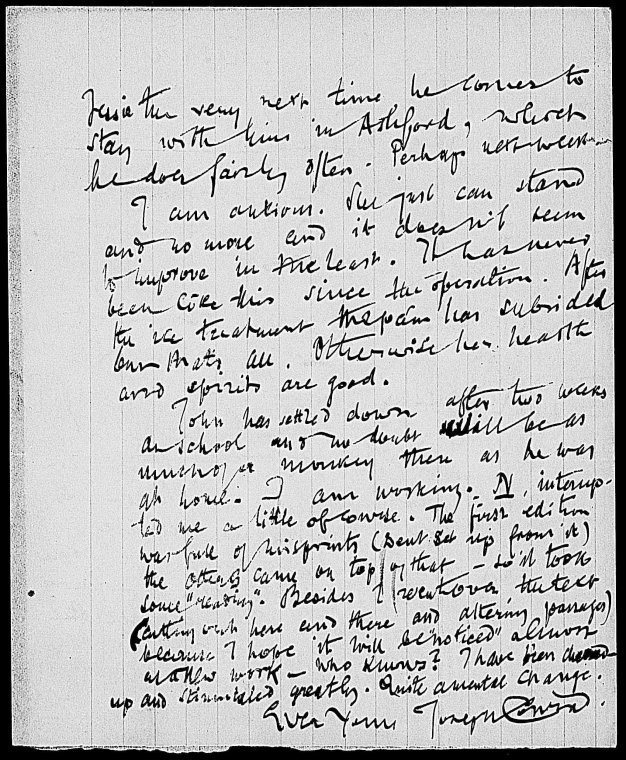 Jessie the very next time he comes to
stay with him in Ashford, which
he does fairly often. Perhaps next week
I am anxious. She just can stand
and no more and it doesn't seem
to improve in the least. It has never
been like this since the operation. After
the ice treatment the pain has subsided
but that's all. Otherwise her health
and spirits are good.
John has settled down after two weeks
at school and no doubt will be as
much of a monkey there as he was
at home. I am working. N. interrup-
ted me a little of course. The first edition
was full of misprints (sent set up from it)
the others came on top of that – so it took
some "reading". Besides I went over the text
(cutting work here and there and altering passages)
because I hope it will be "noticed" almost
as a new work – who knows? I have been
up and stimulated greatly. Quite a mental change.
Ever Yours Joseph Conrad.